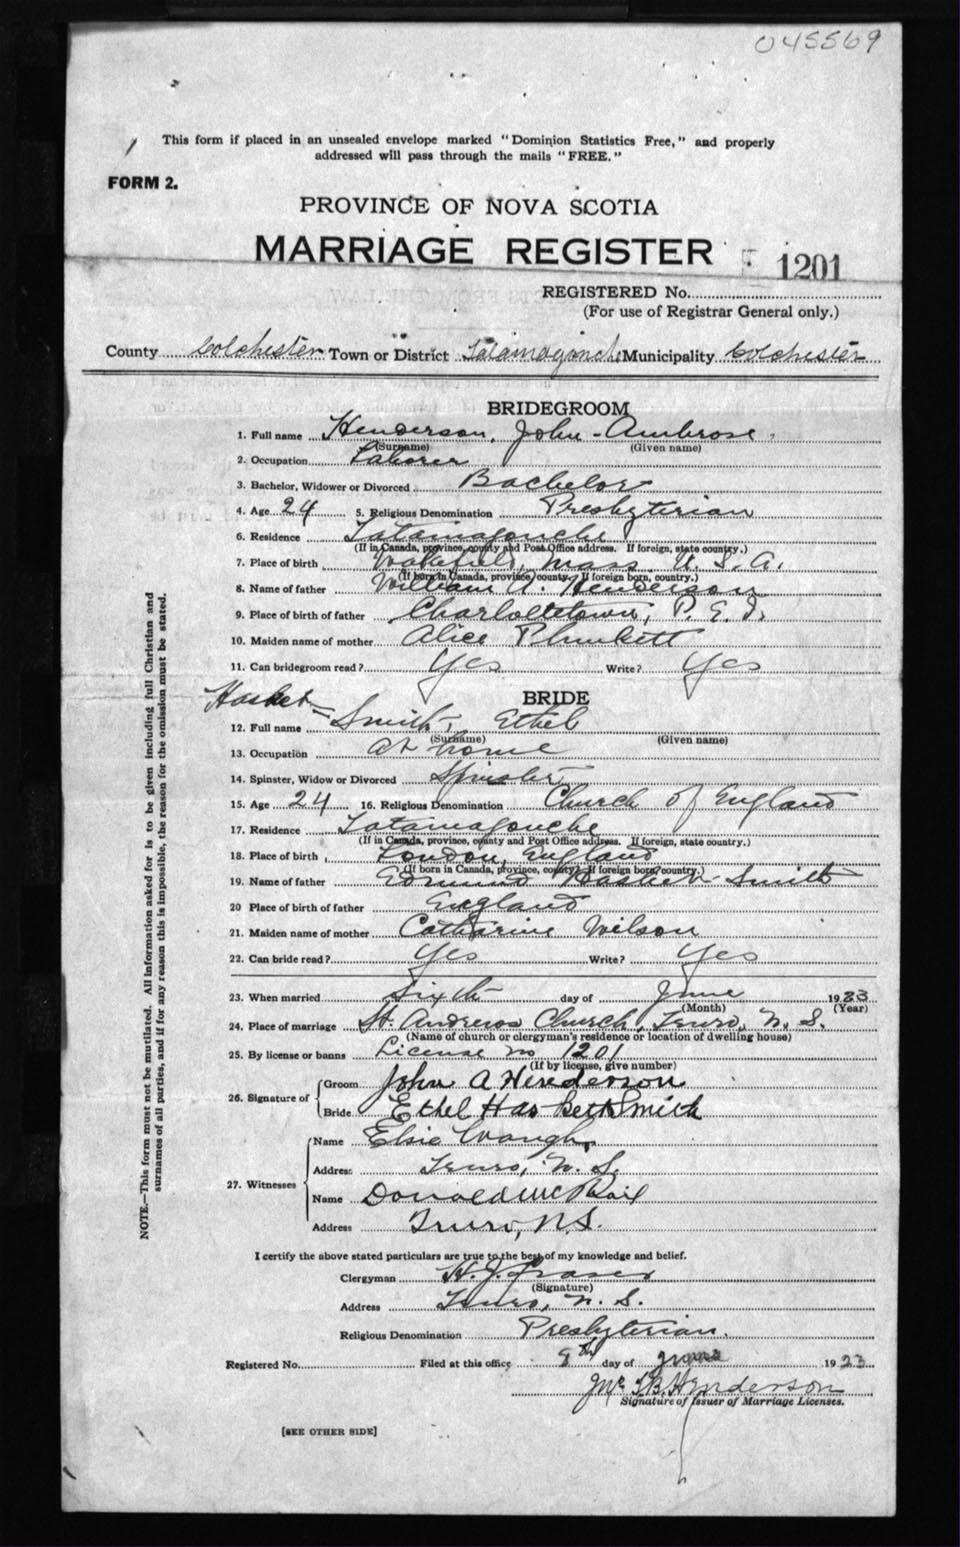 045569
This form if placed in an unsealed envelope marked "Dominion Statistics Free," and properly
addressed will pass through the mails "FREE."
FORM 2.
PROVINCE OF NOVA SCOTIA
MARRIAGE REGISTER
1201
REGISTERED No.
(For use of Registrar General only.)
County Colchester Town or District Tatamagouche Municipality Colchester
BRIDEGROOM
1. Full name Henderson, John Ambrose
(Surname) (Given name)
2. Occupation Laborer
3. Bachelor, Widower or Divorced Bachelor
4. Age 24 5. Religious Denomination Presbyterian
6. Residence Tatamagouche
(If in Canada, province, county and Post Office address. If foreign, state country.)
7. Place of birth Wakefield, Mass. U.S.A.
(If born in Canada, province, county. If foreign born, country.)
8. Name of father William A. Henderson
9. Place of birth of father Charlottetown, P.E.I.
10. Maiden name of mother Alice Plunkett
11. Can bridegroom read? Yes Write? Yes
BRIDE
12. Full name Hasket-Smith, Ethel
(Surname) (Given name)
13. Occupation at home
14. Spinster, Widow or Divorced Spinster
15. Age 24 16. Religious Denomination Church of England
17. Residence Tatamagouche
(If in Canada, province, county and Post Office address. If foreign, state country.)
18. Place of birth London, England
(If born in Canada, province, county. If foreign born, country.)
19. Name of father Edmund Haskett-Smith
20 Place of birth of father England
21. Maiden name of mother Catharine Wilson
22. Can bride read? Yes Write? Yes
23. When married Sixth day of June 1923
(Month) (Year)
24. Place of marriage St. Andrews Church, Truro, N.S.
(Name of church or clergyman's residence or location of dwelling house)
25. By license or banns License no 1201
(If by license, give number)
26. Signature of Groom John A Henderson
Bride Ethel Haskett Smith
27. Witnesses Name Elsie Waugh
Address Truro, N.S.
Name Donald McPhail
Address Truro, N.S.
I certify the above stated particulars are true to the best of my knowledge and belief.
Clergyman H. J. Fraser
(Signature)
Address Truro, N.S.
Religious Denomination Presbyterian.
Registered No. Filed at this office 9th day of June 1923
Henderson
Signature of Issuer of Marriage Licenses.
[SEE OTHER SIDE]
NOTE.—This form must not be mutilated. All information asked for is to be given including full Christian and
surnames of all parties, and if for any reason this is impossible, the reason for the omission must be stated.